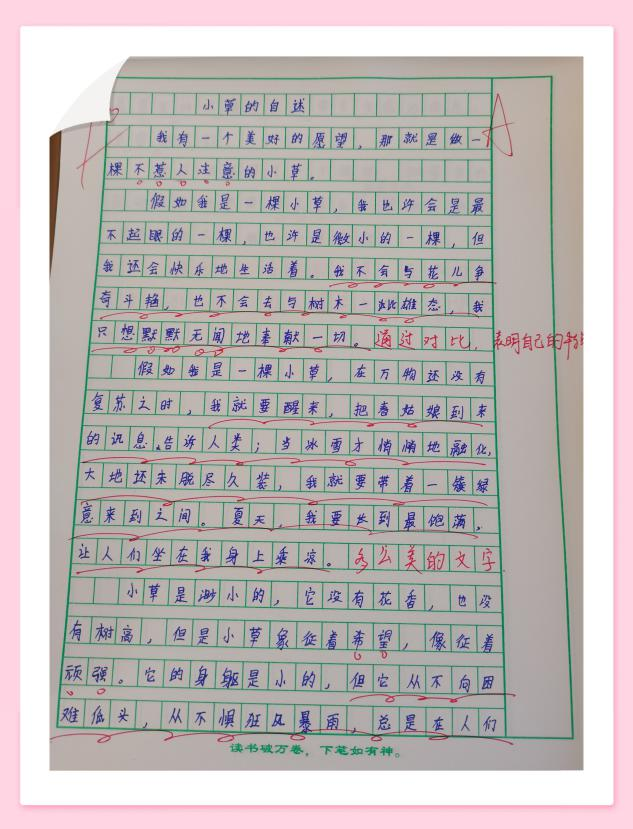 小草的自述
我有一个美好的愿望，那就是做一
棵不惹人注意的小草。
假如我是一棵小草，我也许会是最
不起眼的一棵，也许是微小的一棵，但
我还会快乐地生活着。我不会与花儿争
奇斗艳，也不会去与树木一比雄态，我
只想默默无闻地奉献一切。通过对比，表明自己的
假如我是一棵小草，在万物还没有
复苏之时，我就要醒来，把春姑娘到来
的讯息告诉人类；当冰雪才悄悄地融化，
大地还未脱尽久装，我就要带着一缕绿
意来到之间。夏天，我要长到最饱满，
让人们坐在我身上乘凉。多么美的文字
小草是渺小的，它没有花香，也没
有树高，但是小草象征着希望，像征着
顽强。它的身躯是小的，但它从不向困
难低头，从不惧狂风暴雨，总是在人们
读书破万卷，下笔如有神。